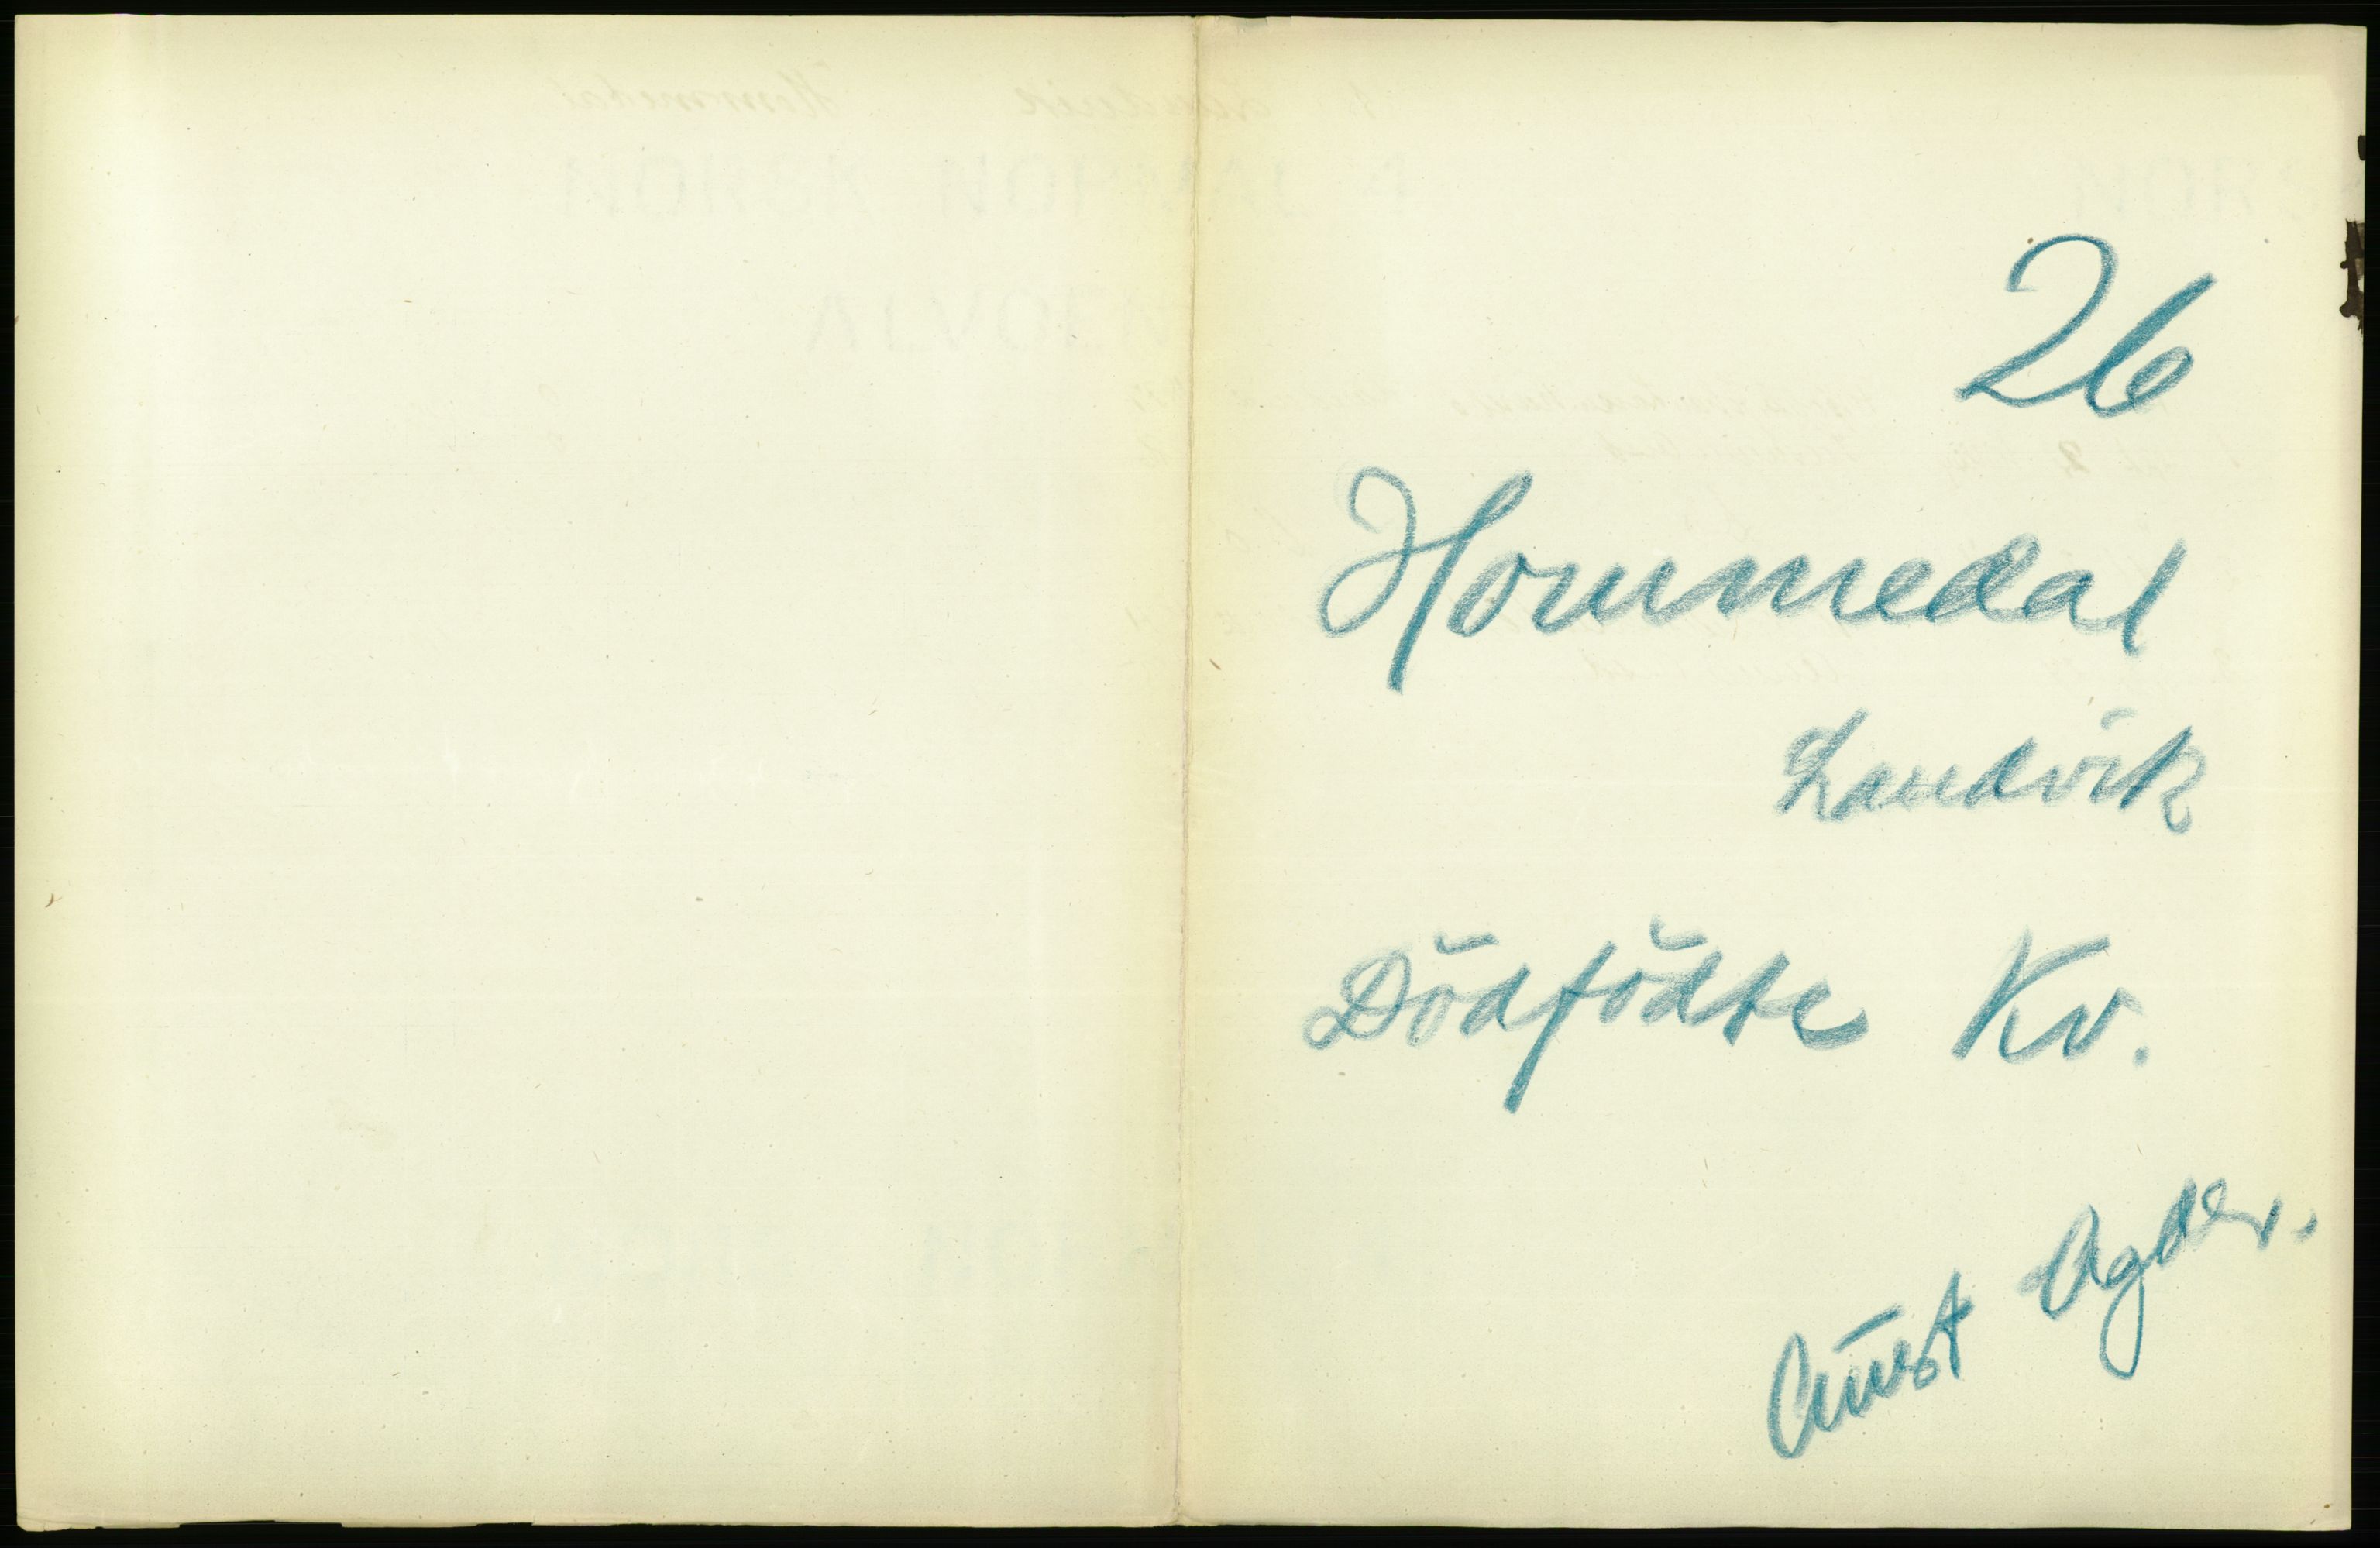 26
Hommedal
Landvik
Dödfödte Kv.
Aust Agder.